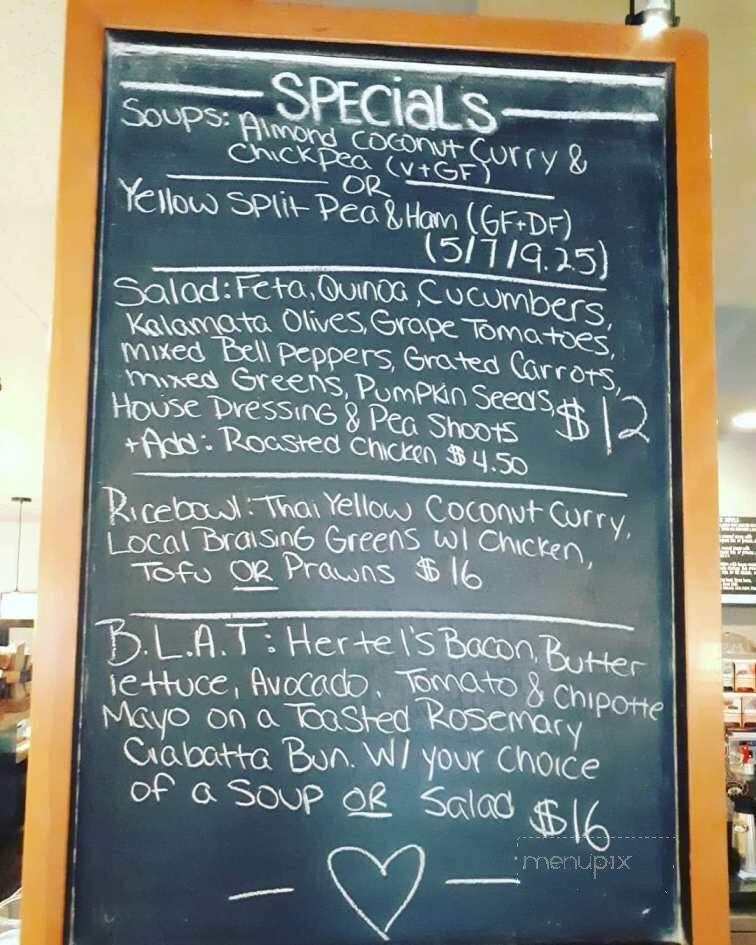 SPECIALS
Soups: Almond Coconut Curry &
Chickpea (V+GF)
OR
Yellow Split Pea & Ham (GF+DF)
(5/7/9.25)
Salad: Feta, Quinoa, Cucumbers,
Kalamata Olives, Grape Tomatoes,
Mixed Bell Peppers, Grated Carrots,
Mixed Greens, Pumpkin Seeds,
House Dressing & Pea Shoots $12
+Add: Roasted Chicken $4.50
Ricebowl: Thai Yellow Coconut Curry,
Local Braising Greens w/ Chicken,
Tofu OR Prawns $16
B.L.A.T: Hertel's Bacon, Butter
lettuce, Avocado, Tomato & Chipotte
Mayo on a Toasted Rosemary
Ciabatta Bun. W/ your choice
of a Soup OR Salad $16
menupix